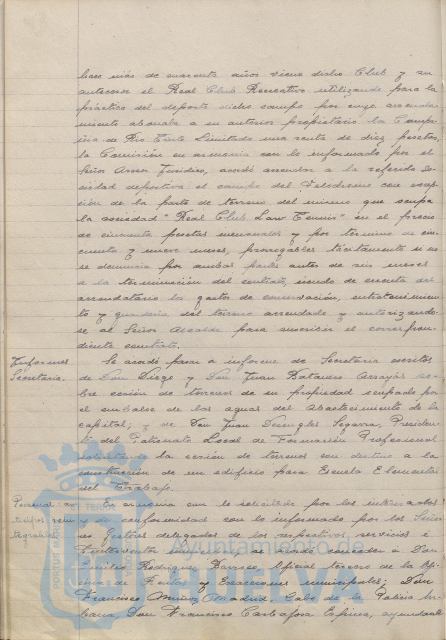 hace más de cuarenta años viene dicho Club y su
antecesor el Real Club Recreativo utilizando para la
práctica del deporte dicho campo por cuyo arrenda-
miento abonaba a su anterior propietario la Compa-
ñia de Rio Tinto Limitada una renta de diez pesetas,
la Comisión en armonía con lo informado por el
Señor Asesor Jurídico, acordó arrendar a la referida So-
ciedad deportiva el campo del Velodromo con excep-
ción de la parte de terreno del mismo que ocupa
la sociedad "Real Club Law Tennis" en el precio
de cincuenta pesetas mensuales y por término de cin-
cuenta y nueve meses, prorrogables tácitamente si no
se denuncia por ambas partes antes de seis meses
a la terminación del contrato, siendo de cuenta del
arrendatario los gastos de conservación, entretenimien-
to y guardería del terreno arrendado y autorizándo-
se al Señor Alcalde para suscribir el correspon-
diente contrato.
Informes Secretaria.
Se acordó pasar a informe de Secretaria escritos
de Don Diego y Don Juan Arrayás so-
bre cesión de terrenos de su propiedad ocupado por
el embalse de las aguas del Abastecimiento de la
capital; y de Don Juan Segarra, Presiden-
te del Patronato Local de Formación Profesional
solicitando la cesión de terrenos con destino a la
construcción de un edificio para Escuela Elemental
del Trabajo.
Personal
En armonía con lo solicitado por los interesados
y de conformidad con lo informado por los Seño-
res delegados de los respectivos servicios e
se acordó conceder a Don
Emilio Rodriguez Oficial tercero de la Ofi-
cina de Rentas y Exacciones municipales; Don
Francisco Muñoz Cabo de la Policía Ur-
bana, Don Francisco Espina,
Ayuntamiento de